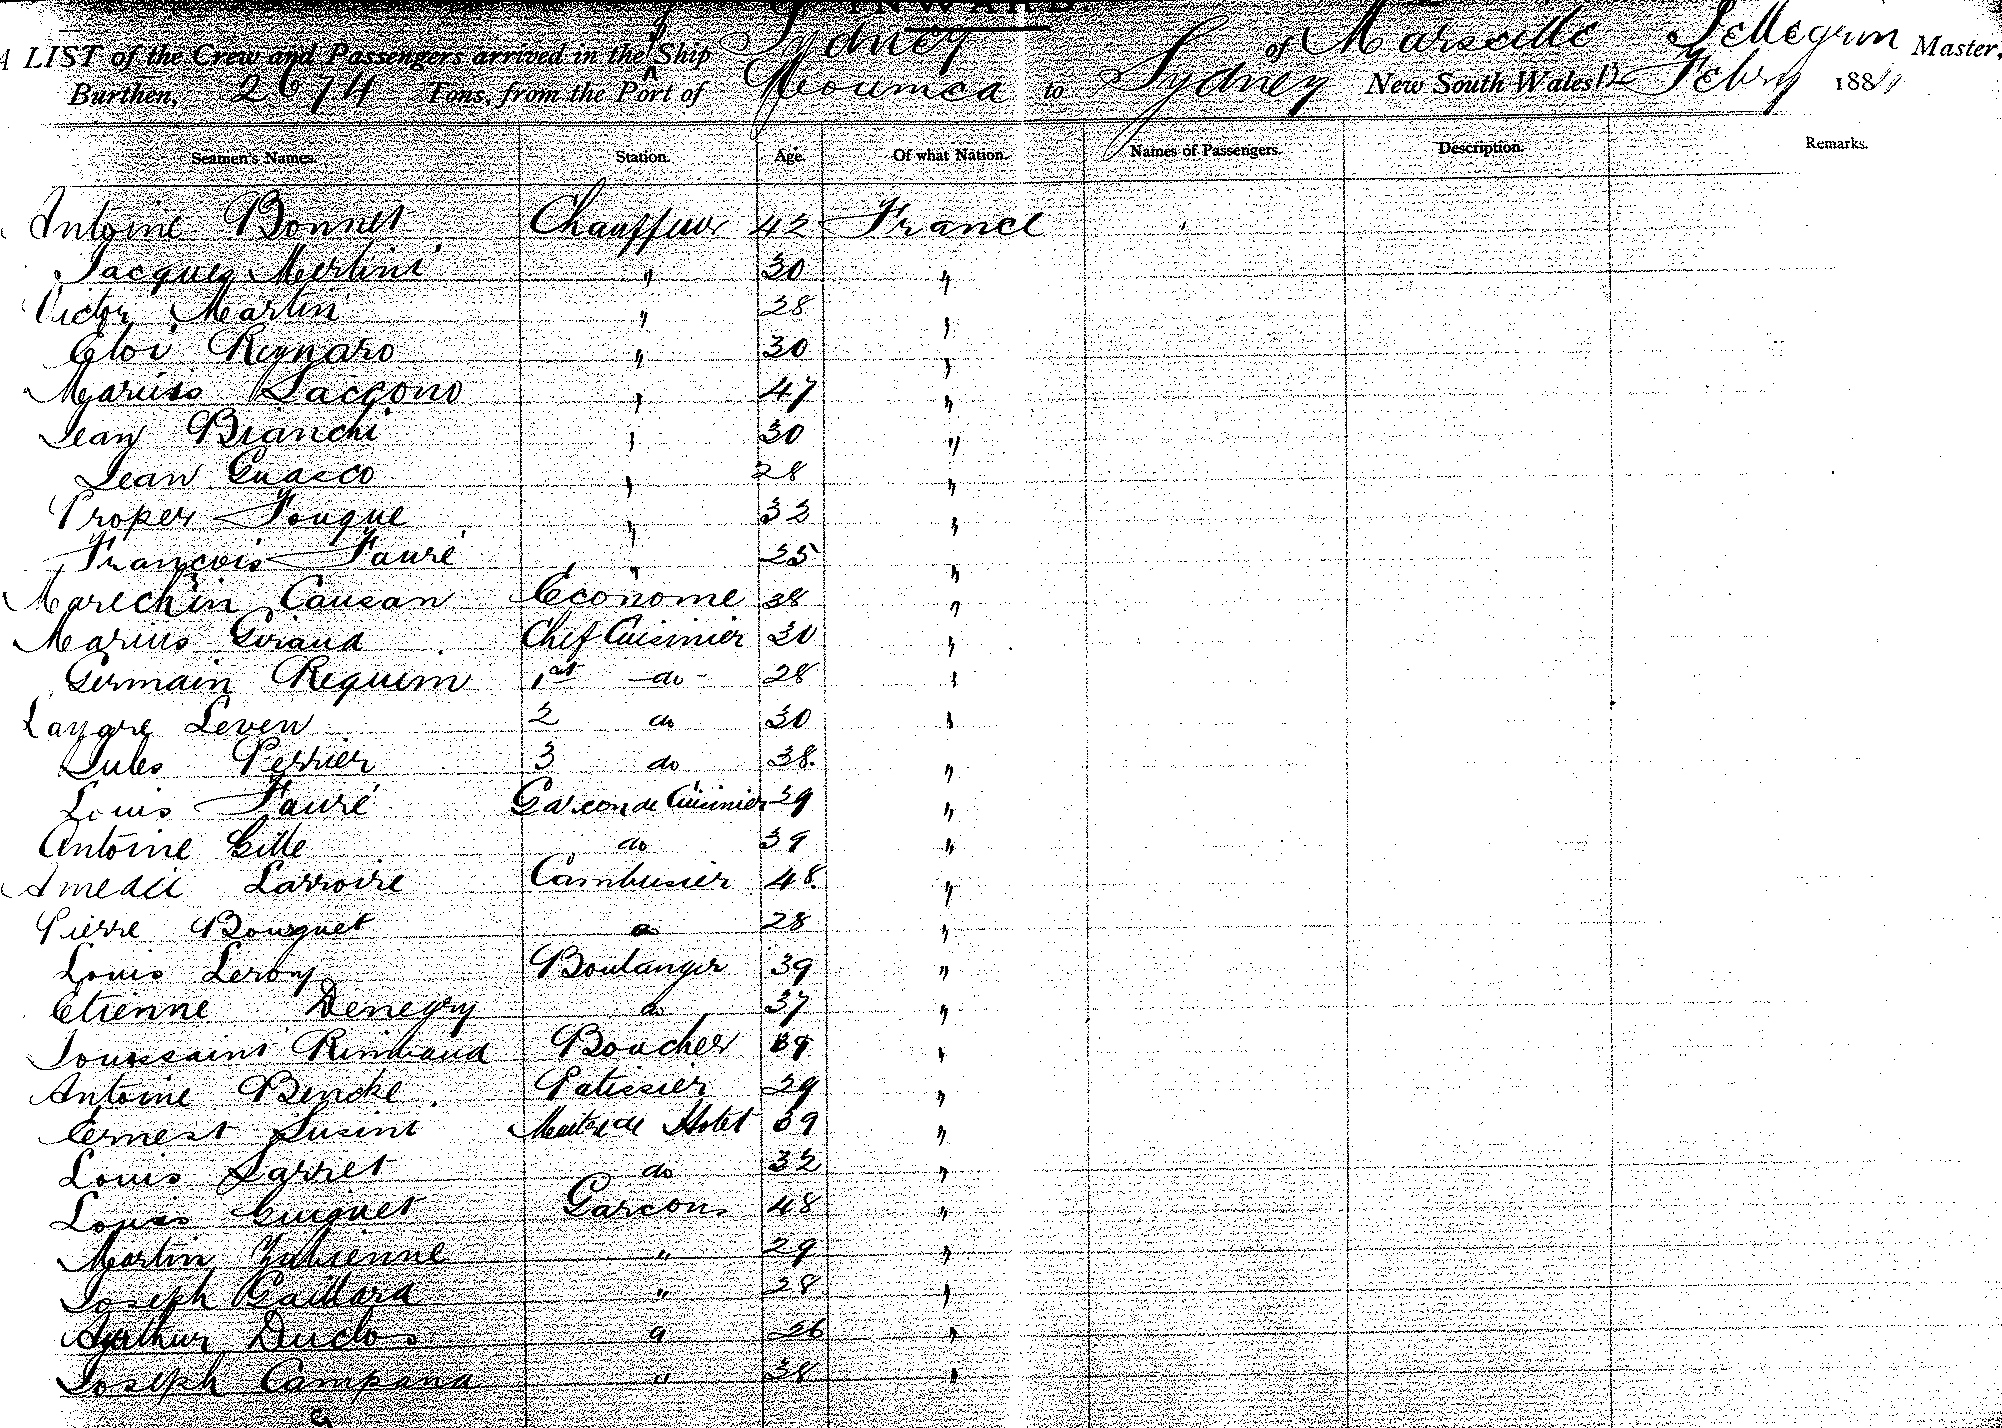 INWARD.
A LIST of the Crew and Passengers arrived in the Ship Sydney of Marseille Pellegrin Master,
Burthen, 2674 Tons, from the Port of Noumea to Sydney New South Wales 13 Febry 188
Seamen's Names. Station. Age. Of what Nation. Names of Passengers. Description. Remarks.
Antoine Bonnet Chauffeur 42 France
Jacques Merlini " 30 "
Victor Martin " 28 "
Eloi Reynaro " 30 "
Marius Saccono " 47 "
Jean Bianchi " 30 "
Jean Guasco " 28 "
Proper Fouque " 33 "
François Fauré " 25 "
Marechin Causan Econome 38 "
Marius Giraud Chef Cuisinier 30 "
Germain Requim 1st do 28 "
Leven 2 do 30 "
Jules Perrier 3 do 38 "
Louis Fauré Garcon de Cuisinier 39 "
Antoine Gille do 39 "
Amedée Larroire Cambusier 48 "
Pierre Bouquet do 28 "
Louis Leroy Boulanger 39 "
Etienne Denegry do 37 "
Toussaint Rimbaud Boucher 39 "
Antoine Bencke Patissier 29 "
Ernest Susini Maitre de Hotel 39 "
Louis Sarret do 32 "
Louis Guignet Garcon 48 "
Martin Julienne " 29 "
Joseph Gaillard " 28 "
Arthur Duclos " 26 "
Joseph Campana " 38 "